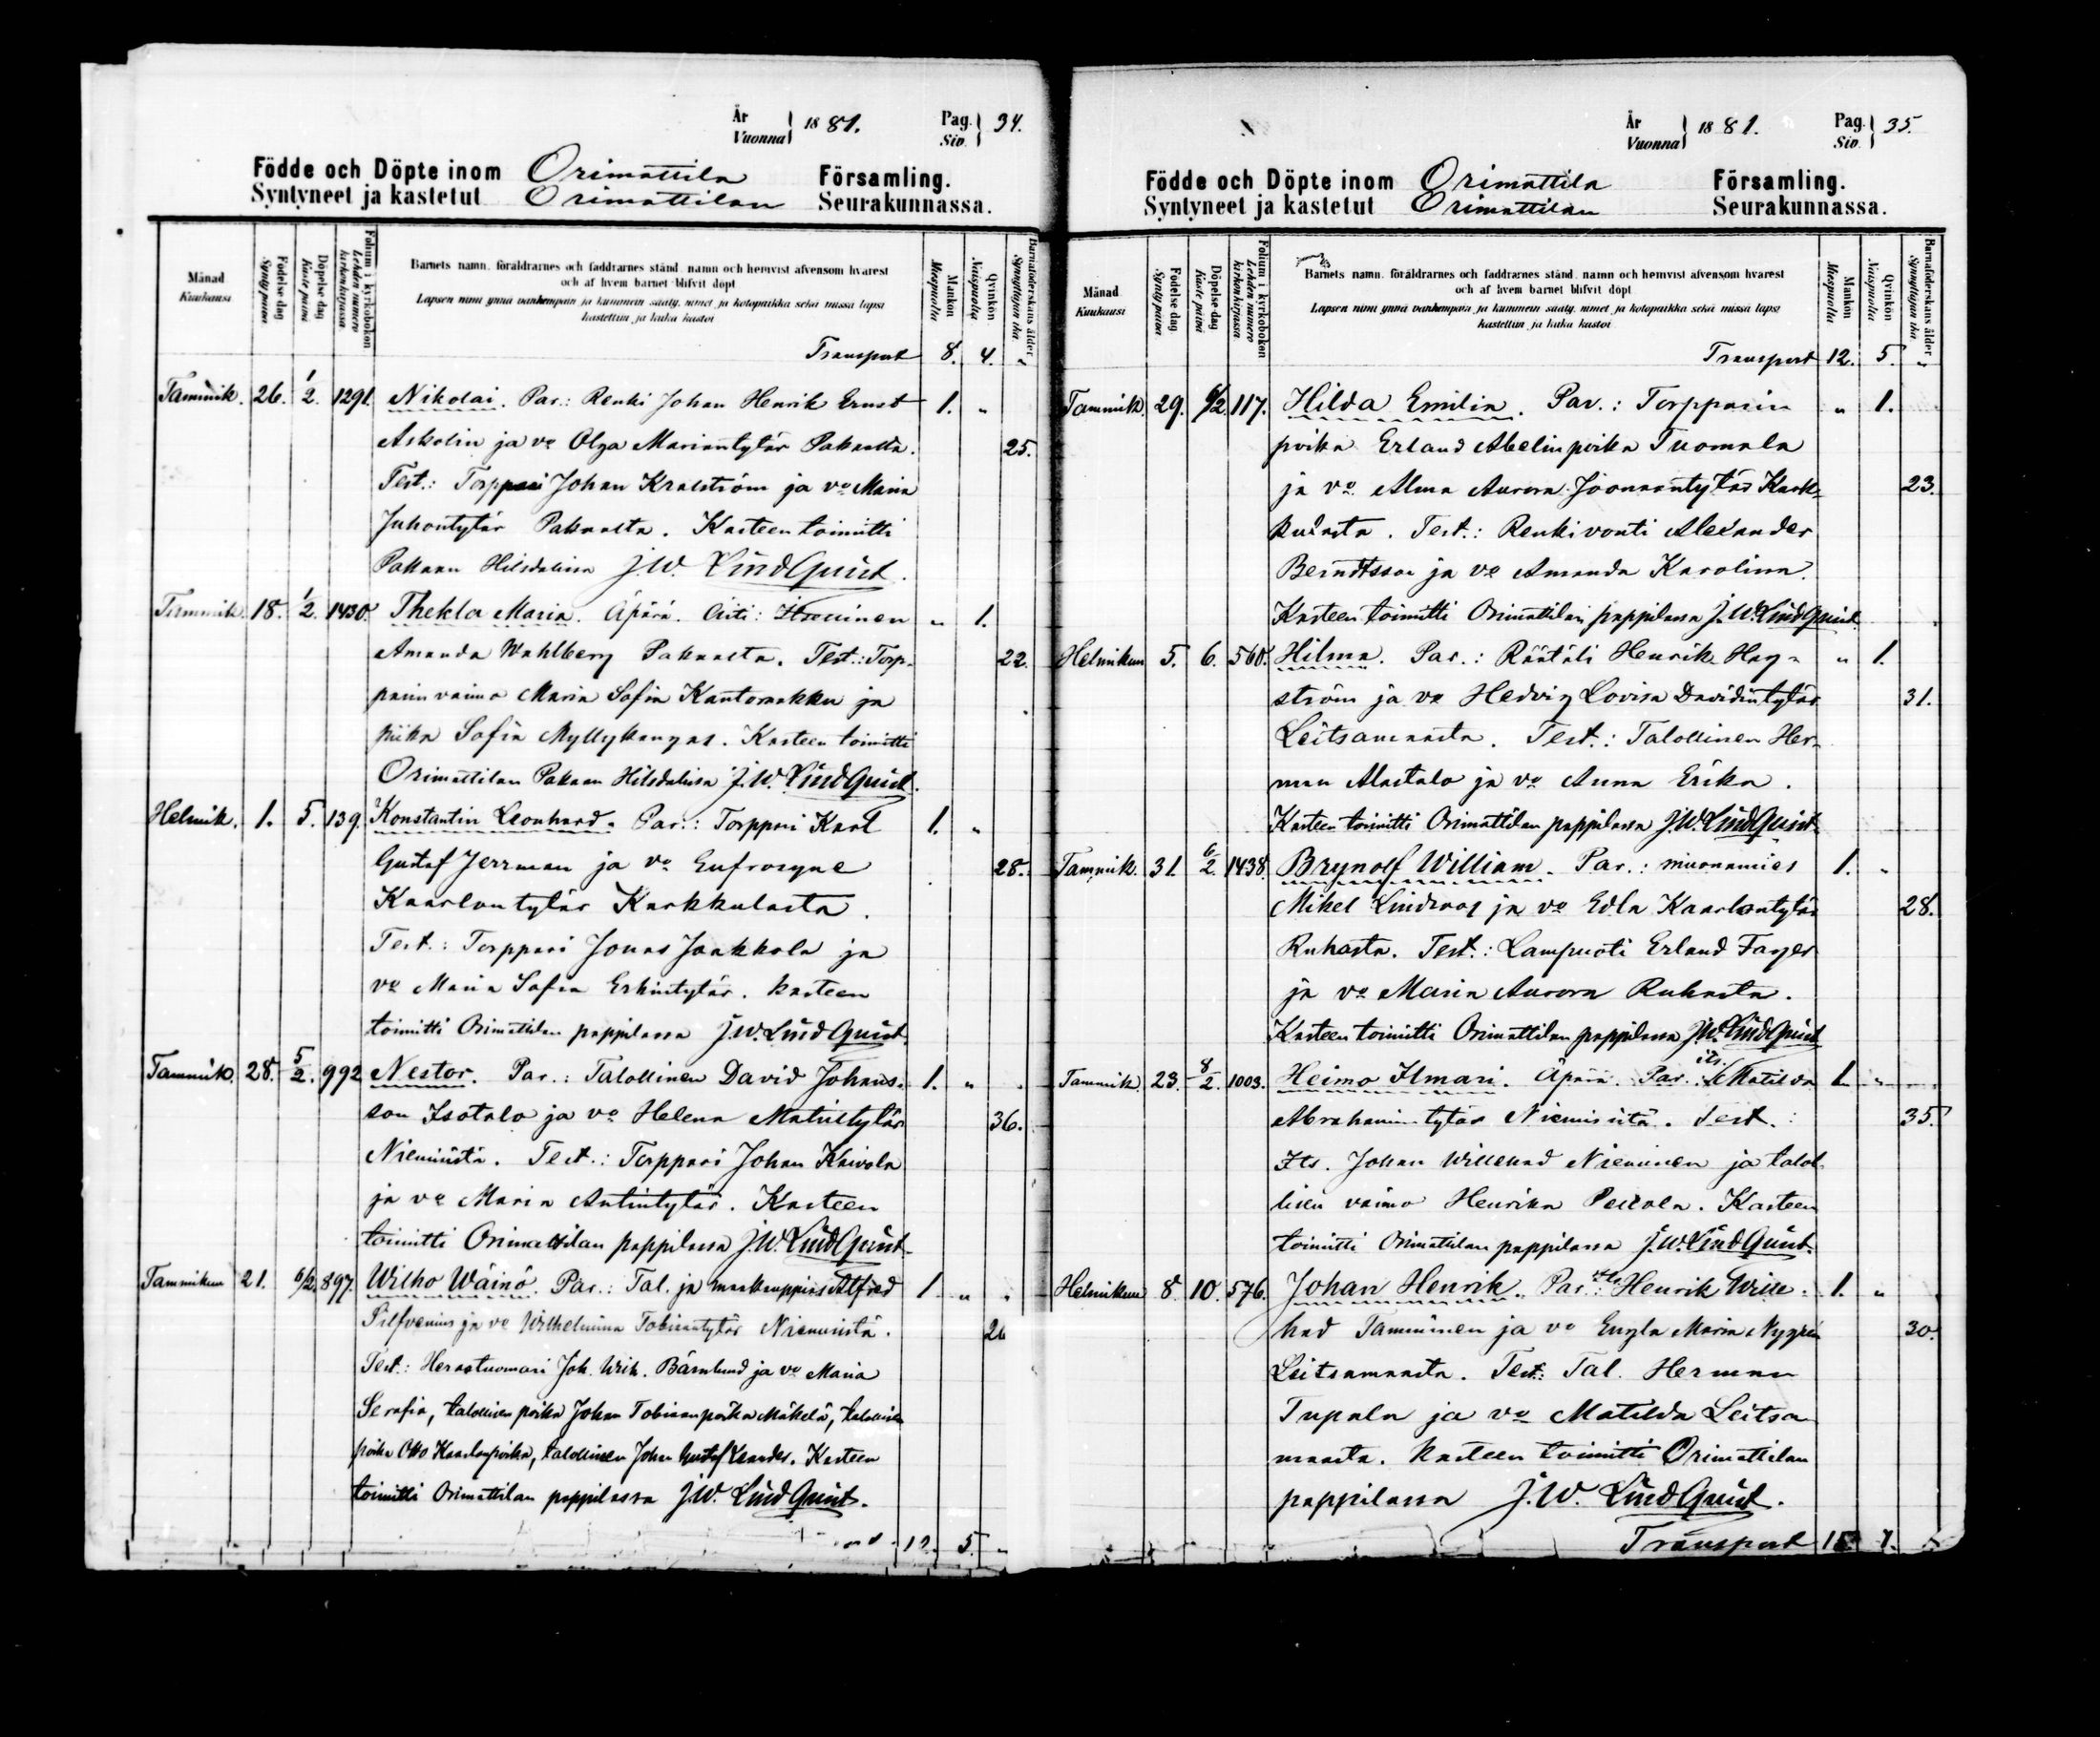 År
Vuonna 1881.
Pag.
Siv. 34.
Födde och Döpte inom Orimattila Församling.
Syntyneet ja kastetut Orimattilan Seurakunnassa.
Månad
Kuukausi
Födelse dag
Synty päivä
Döpelse dag
Kaste päivä
Folium i kyrkoboken
Lehden numero kirkonkirjassa
Barnets namn, föräldrarnes och faddrarnes stånd, namn och hemvist äfvensom hvarest
och af hvem barnet blifvit döpt
Lapsen nimi ynnä vanhempain ja kummein sääty, nimet ja kotopaikka sekä missä lapsi
kastettiin ja kuka kastoi
Mankön
Miespuolia
Qvinkön
Naispuolia
Barnaföderskans ålder
Synnyttäjän ikä
Transport 8. 4. "
Tammik. 26. 1/2. 1291. Nikolai. Par.: Renki Johan Henrik Ernst 1. "
Askolin ja vo Olga Mariantytär Pakaalta. 25.
Test.: Torppari Johan Kralström ja vo Maria
Juhontytär Pakaalta. Kasteen toimitti
Pakaan Hilsdalissa J.W. LindQuist.
Tammik. 18. 1/2. 1430. Thekla Maria. Äpärä. Äiti: Itsellinen " 1.
Amanda Wahlberg Pakaalta. Test.: Torp- 22.
parin vaimo Maria Sofia Kantomakku ja
piika Sofia Myllykangas. Kasteen toimitti
Orimattilan Pakaan Hilsdalissa J.W. LindQuist.
Helmik. 1. 5. 139. Konstantin Leonhard. Par.: Torppari Karl 1. "
Gustaf Jerrman ja vo Eufrosyne 28.
Kaarlontytär Karkkulasta.
Test.: Torppari Jonas Jaakkola ja
vo Maria Sofia Erkintytär. Kasteen
toimitti Orimattilan pappilassa J.W. LindQuist.
Tammik. 28. 5/2. 992 Nestor. Par.: Talollinen David Johans- 1. "
son Isotalo ja vo Helena Matintytär 36.
Niemiistä. Test.: Torppari Johan Kaivola
ja vo Maria Antintytär. Kasteen
toimitti Orimattilan pappilassa J.W. LindQuist.
Tammikuu 21. 6/2. 897. Wilho Wäinö. Par.: Tal. ja maakauppias Alfred 1. " "
Silfvenius ja vo Wilhelmina Tobiaantytär Niemiistä. 26
Test.: Herastuomari Joh. Wilh. Bärnlund ja vo Maria
Serafia, talollisen poika Johan Tobiaanpoika Mäkelä, talollisen
poika Otto Kaarlonpoika, talollinen Johan Gustaf Leander. Kasteen
toimitti Orimattilan pappilassa J.W. LindQuist.
12. 5. "
År
Vuonna 1881.
Pag.
Siv. 35.
Födde och Döpte inom Orimattila Församling.
Syntyneet ja kastetut Orimattilan Seurakunnassa.
Månad
Kuukausi
Födelse dag
Synty päivä
Döpelse dag
Kaste päivä
Folium i kyrkoboken
Lehden numero kirkonkirjassa
Barnets namn, föräldrarnes och faddrarnes stånd, namn och hemvist äfvensom hvarest
och af hvem barnet blifvit döpt
Lapsen nimi ynnä vanhempain ja kummein sääty, nimet ja kotopaikka sekä missä lapsi
kastettiin ja kuka kastoi
Mankön
Miespuolia
Qvinkön
Naispuolia
Barnaföderskans ålder
Synnyttäjän ikä
Transport 12. 5. "
Tammik. 29. 6/2. 117. Hilda Emilia. Par.: Torpparin " 1.
poika Erland Abelinpoika Tuomala
ja vo. Alma Aurora Joonaantytär Kark- 23.
kulasta. Test.: Renkivouti Alexander
Berndtsson ja vo Amanda Karolina.
Kasteen toimitti Orimattilan pappilassa J.W. LindQuist.
Helmikuu 5. 6. 560. Hilma. Par.: Räätäli Henrik Hag- " 1.
ström ja vo Hedvig Lovisa Davidintytär 31.
Leitsamaasta. Test.: Talollinen Her-
man Alastalo ja vo Anna Erika.
Kasteen toimitti Orimattilan pappilassa J.W. LindQuist.
Tammik. 31. 6/2. 1438. Brynolf William. Par.: muonamies 1. "
Mikel Lindroos ja vo Edla Kaarlontytär 28.
Ruhasta. Test.: Lampuoti Erland Fager
ja vo Maria Aurora Ruhasta.
Kasteen toimitti Orimattilan pappilassa J.W. LindQuist
Tammik. 23. 8/2. 1003. Heimo Ilmari. Äpärä. Par.: its. Matilda 1. "
Abrahamintytär Niemiistä. Test.: 35.
Its. Johan Willehad Nieminen ja talol-
lisen vaimo Henrika Peltola. Kasteen
toimitti Orimattilan pappilassa J.W. LindQuist.
Helmikuu 8. 10. 576. Johan Henrik. Par.: its. Henrik Wille- 1. "
had Tamminen ja vo Engla Maria Nygrén 30.
Leitsamaasta. Test.: Tal. Herman
Tupala ja vo Matilda Leitsa
maasta. Kasteen toimitti Orimattilan
pappilassa J.W. LindQuist.
Transport 15. 7.